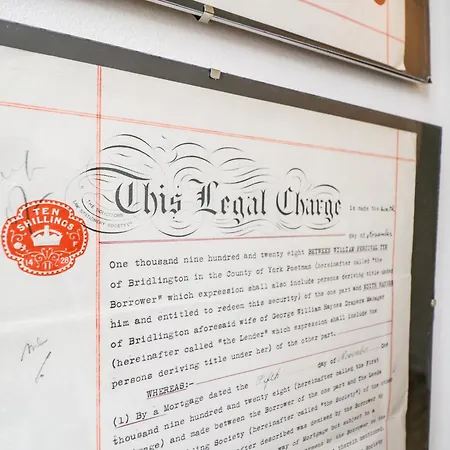 This Legal Charge
is made the
THE SOLICITORS
LAW STATIONERY
SOCIETY LD
day of November
TEN
SHILLINGS
14 11 28
One thousand nine hundred and twenty eight BETWEEN WILLIAM PERCIVAL
of Bridlington in the County of York Postman (hereinafter called "the
Borrower" which expression shall also include persons deriving title under
him and entitled to redeem this security) of the one part and EDITH
of Bridlington aforesaid wife of George William Haynes Drapers Manager
(hereinafter called "the Lender" which expression shall include the
persons deriving title under her) of the other part.
WHEREAS:-
(1) By a Mortgage dated the Fifth day of November One
thousand nine hundred and twenty eight (hereinafter called the First
Mortgage) and made between the Borrower of the one part and the Leeds
Building Society (hereinafter called "the Society") of the other
after described was demised by the Borrower
way of Mortgage but subject to a
payment by the Borrower to the
therein mentioned